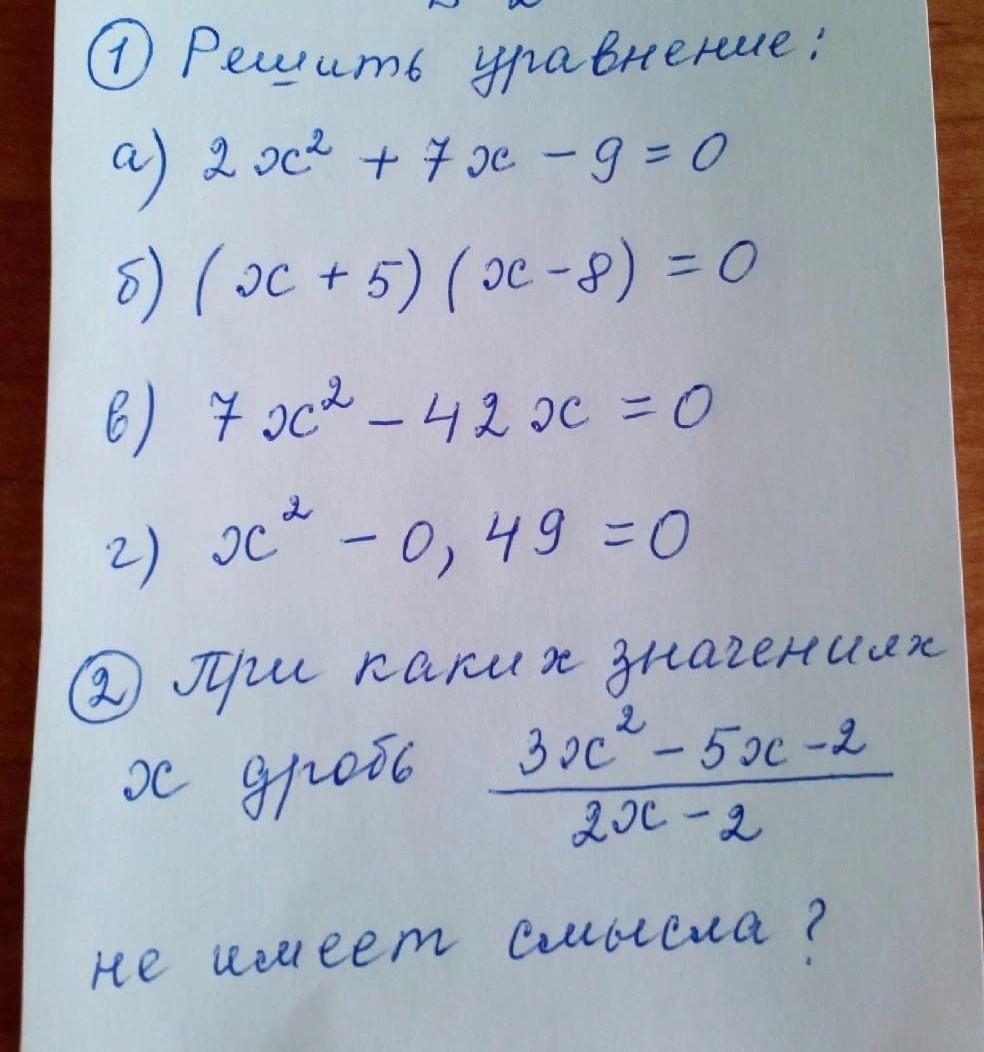 ① Решить уравнение:
а) 2x² + 7x - 9 = 0
б) (x + 5)(x - 8) = 0
в) 7x² - 42x = 0
г) x² - 0,49 = 0
② При каких значениях
x дробь (3x² - 5x - 2)/(2x - 2)
не имеет смысла?